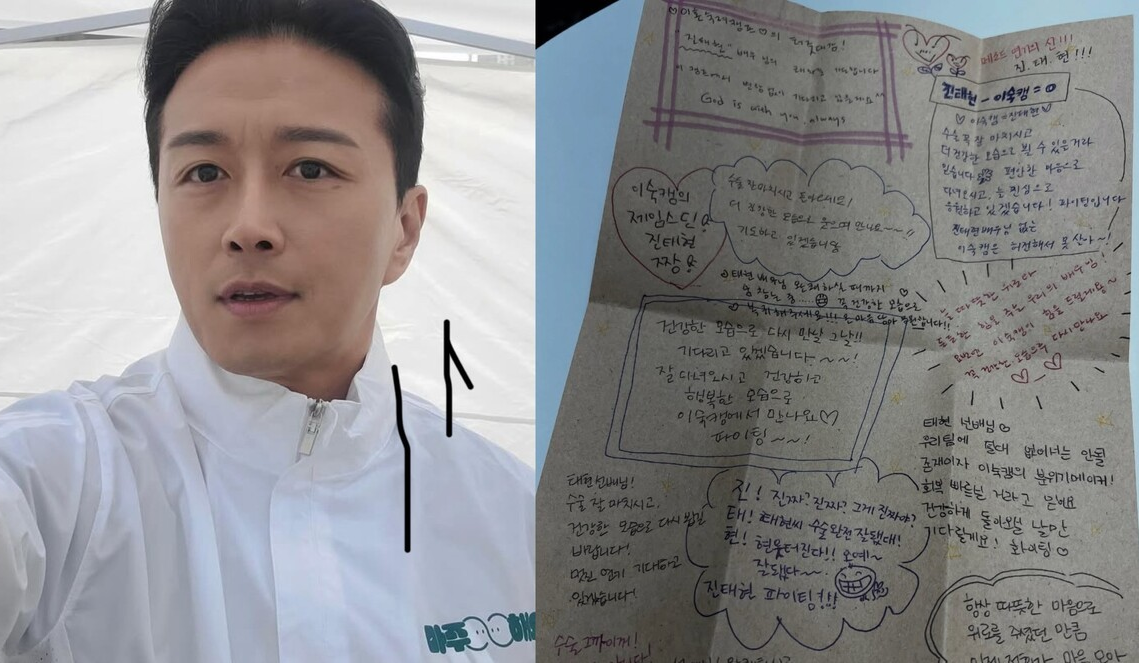 마주 해
이숙캠
"진태현" 배우님의
God is with you always
진.태.현!!!
진태현 - 이숙캠 = 0
♡ 이숙캠=진태현 ♡
수술 꼭 잘 마치시고
더 건강한 모습으로 뵐 수 있을거라
믿습니다 편안한 마음으로
다녀오시고, 늘 진심으로
응원하고 있겠습니다! 화이팅입니다
진태현배우님 없는
이숙캠은 허전해서 못살아~!
이숙캠의
제임스딘!
진태현
짱!
수술 잘 마치시고 돌아오세요!
더 건강한 모습으로 웃으며 만나요~~!!
기도하고 있겠습니다
태현 배우님 완쾌하실 때까지
꼭 건강한 모습으로
복귀해주세요!!!
건강한 모습으로 다시 만날 그날!!
기다리고 있겠습니다~~!
잘 다녀오시고 건강하고
행복한 모습으로
이숙캠에서 만나요♡
파이팅~~!
우리의 배우님!
이숙캠이 힘을 드릴게요
꼭 건강한 모습으로 다시 만나요
태현 선배님
우리팀에 절대 없어서는 안될
존재이자 이숙캠의 분위기메이커!
회복 빠르실 거라고 믿어요
건강하게 돌아오실 날만
기다릴게요! 화이팅♡
태현선배님!
수술 잘 마치시고,
건강한 모습으로 다시 뵙길
바랍니다!
멋진 연기 기대하고
있겠습니다!
진! 진짜? 진짜? 그게 진짜야?
태! 태현씨 수술 완전 잘됐대!
현! 현웃터진다!! 오예~
잘됐다~~
진태현 파이팅!!!
항상 따뜻한 마음으로
위로를 주셨던 만큼
마음 모아
수술 그까이꺼!